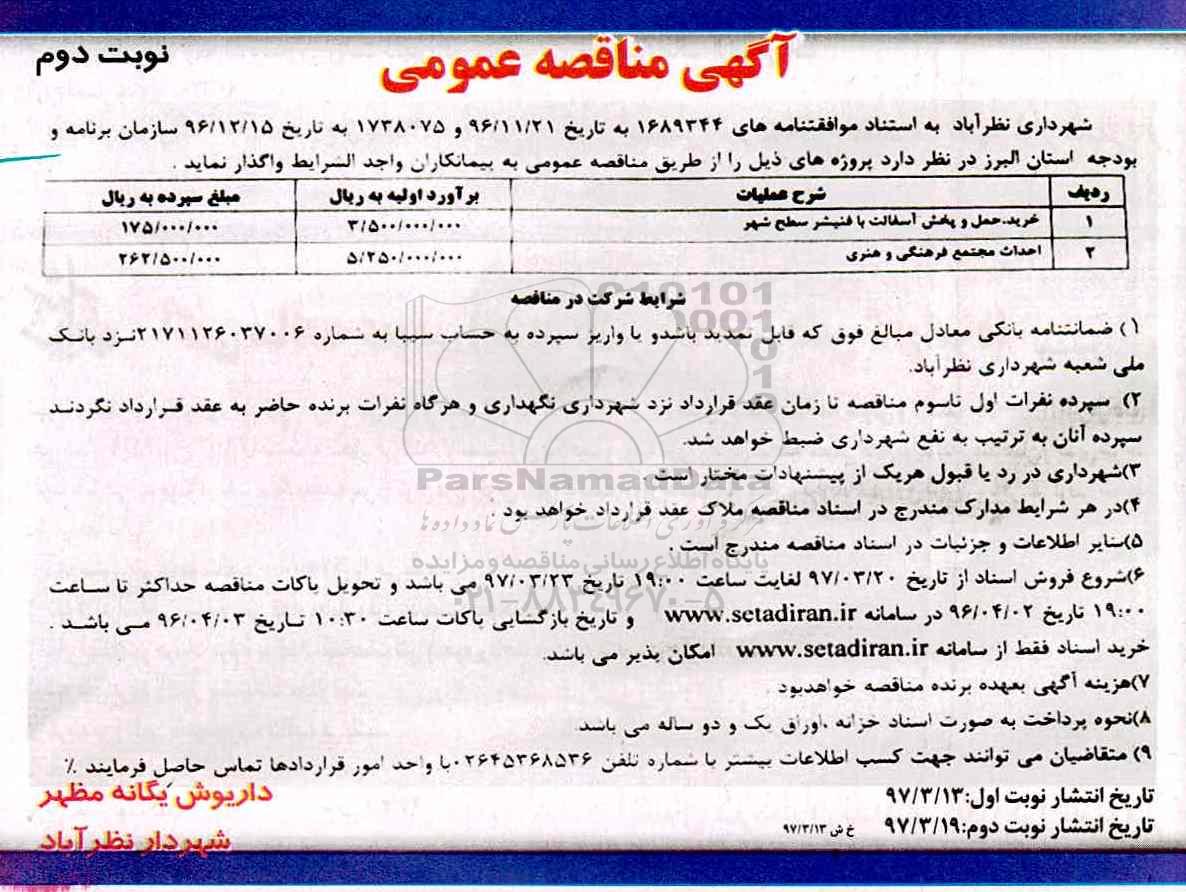 نوبت دوم
آگهی مناقصه عمومی
شهرداری نظرآباد به استناد موافقتنامه های ۱۶۸۹۳۴۴ به تاریخ ۹۶/۱۱/۲۱ و ۱۷۳۸۰۷۵ به تاریخ ۹۶/۱۲/۱۵ سازمان برنامه و
بودجه استان البرز در نظر دارد پروژه های ذیل را از طریق مناقصه عمومی به پیمانکاران واجد الشرایط واگذار نماید .
ردیف شرح عملیات برآورد اولیه به ریال مبلغ سپرده به ریال
۱ خرید،حمل و پخش آسفالت با فنیشر سطح شهر ۳/۵۰۰/۰۰۰/۰۰۰ ۱۷۵/۰۰۰/۰۰۰
۲ احداث مجتمع فرهنگی و هنری ۵/۲۵۰/۰۰۰/۰۰۰ ۲۶۲/۵۰۰/۰۰۰
شرایط شرکت در مناقصه
۱) ضمانتنامه بانکی معادل مبالغ فوق که قابل تمدید باشدو یا واریز سپرده به حساب سیبا به شماره ۲۱۷۱۱۲۶۰۳۷۰۰۶نزد بانک
ملی شعبه شهرداری نظرآباد.
۲) سپرده نفرات اول تاسوم مناقصه تا زمان عقد قرارداد نزد شهرداری نگهداری و هرگاه نفرات برنده حاضر به عقد قرارداد نگردند
سپرده آنان به ترتیب به نفع شهرداری ضبط خواهد شد.
۳)شهرداری در رد یا قبول هریک از پیشنهادات مختار است
۴)در هر شرایط مدارک مندرج در اسناد مناقصه ملاک عقد قرارداد خواهد بود .
۵)سایر اطلاعات و جزئیات در اسناد مناقصه مندرج است .
۶)شروع فروش اسناد از تاریخ ۹۷/۰۳/۲۰ لغایت ساعت ۱۹:۰۰ تاریخ ۹۷/۰۳/۲۳ می باشد و تحویل پاکات مناقصه حداکثر تا ساعت
۱۹:۰۰ تاریخ ۹۶/۰۴/۰۲ در سامانه www.setadiran.ir و تاریخ بازگشایی پاکات ساعت ۱۰:۳۰ تاریخ ۹۶/۰۴/۰۳ می باشد .
خرید اسناد فقط از سامانه www.setadiran.ir امکان پذیر می باشد.
۷)هزینه آگهی بعهده برنده مناقصه خواهدبود .
۸)نحوه پرداخت به صورت اسناد خزانه ،اوراق یک و دو ساله می باشد
۹) متقاضیان می توانند جهت کسب اطلاعات بیشتر با شماره تلفن ۰۲۶۴۵۳۶۸۵۳۶با واحد امور قراردادها تماس حاصل فرمایند ٪
تاریخ انتشار نوبت اول:۹۷/۳/۱۳
تاریخ انتشار نوبت دوم:۹۷/۳/۱۹ خ ش ۹۷/۳/۱۳
داریوش یگانه مظهر
شهردار نظرآباد
ParsNamadData
پایگاه اطلاع رسانی مناقصه و مزایده
۰۲۱-۸۸۳۴۹۶۷۰-۵